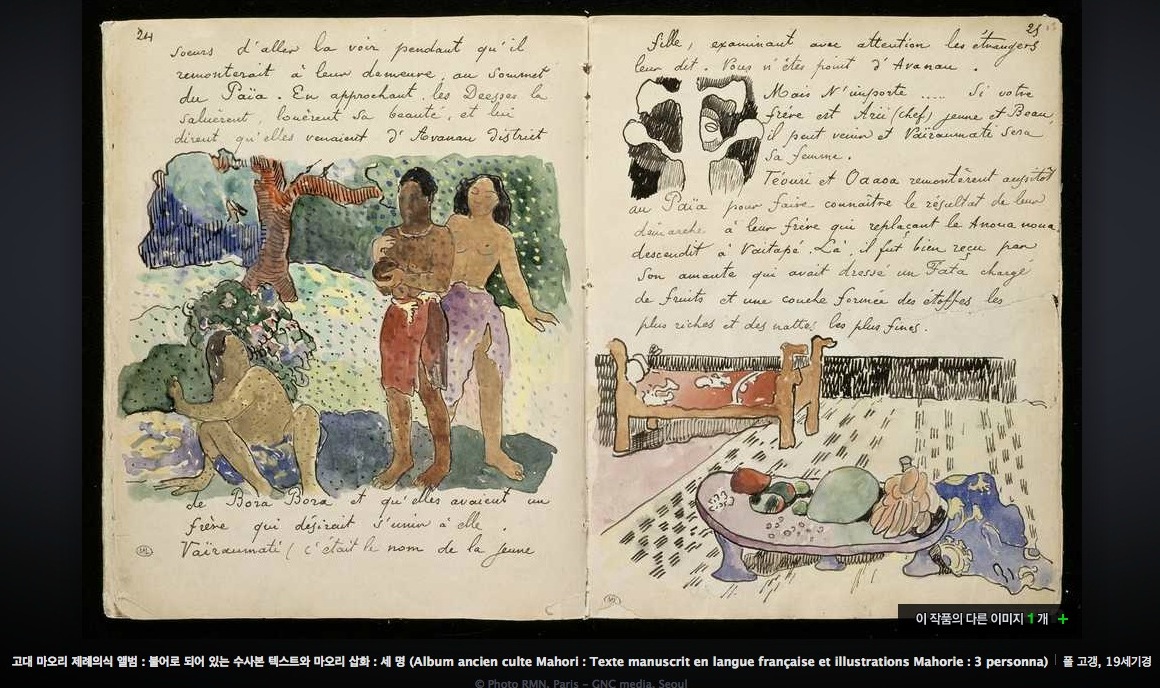 24
Soeurs d'aller la voir pendant qu'il
remonterait à leur demeure, au Sommet
du Païa. En approchant les Deesses la
Saluèrent, louèrent Sa beauté, et lui
dirent qu'elles venaient d'Avanau district
de Bora Bora et qu'elles avaient un
frère qui désirait s'unir à elle.
Vaïraumati (c'était le nom de la jeune
25
fille, examinant avec attention les étrangers
leur dit. Vous n'êtes point d'Avanau.
Mais N'importe ..... Si votre
frère est Arii (chef) jeune et Beau,
il peut venir et Vaïraumati Sera
Sa femme.
Téouri et Oaaoa remontèrent aussitôt
au Païa pour faire connaître le résultat de leur
démarche à leur frère qui replaçant le Anoua noua
descendit à Vaitapé. Là, il fut bien reçu par
Son amante qui avait dressé un Fata chargé
de fruits et une couche formée des étoffes les
plus riches et des nattes les plus fines.
이 작품의 다른 이미지 1 개 +
고대 마오리 제례의식 앨범 : 불어로 되어 있는 수사본 텍스트와 마오리 삽화 : 세 명 (Album ancien culte Mahori : Texte manuscrit en langue française et illustrations Mahorie : 3 personna) | 폴 고갱, 19세기경
© Photo RMN, Paris - GNC media, Seoul